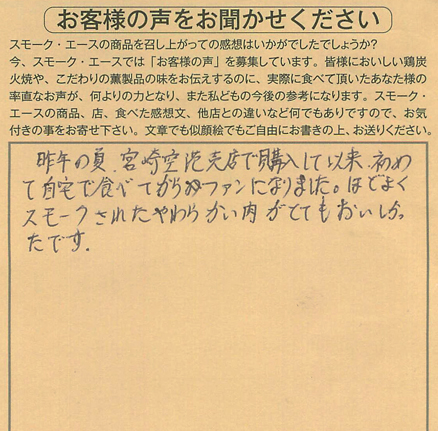 お客様の声をお聞かせください
スモーク・エースの商品を召し上がっての感想はいかがでしたでしょうか?
今、スモーク・エースでは「お客様の声」を募集しています。皆様においしい鶏炭
火焼や、こだわりの薫製品の味をお伝えするのに、実際に食べて頂いたあなた様の
率直なお声が、何よりの力となり、また私どもの今後の参考になります。スモーク・
エースの商品、店、食べた感想文、他店との違いなど何でもありですので、お気
付きの事をお寄せ下さい。文章でも似顔絵でもご自由にお書きの上、お送りください。
昨年の夏、宮崎空港売店で購入して以来、初め
て自宅で食べてからファンになりました。ほどよく
スモークされたやわらかい肉がとてもおいしかっ
たです.